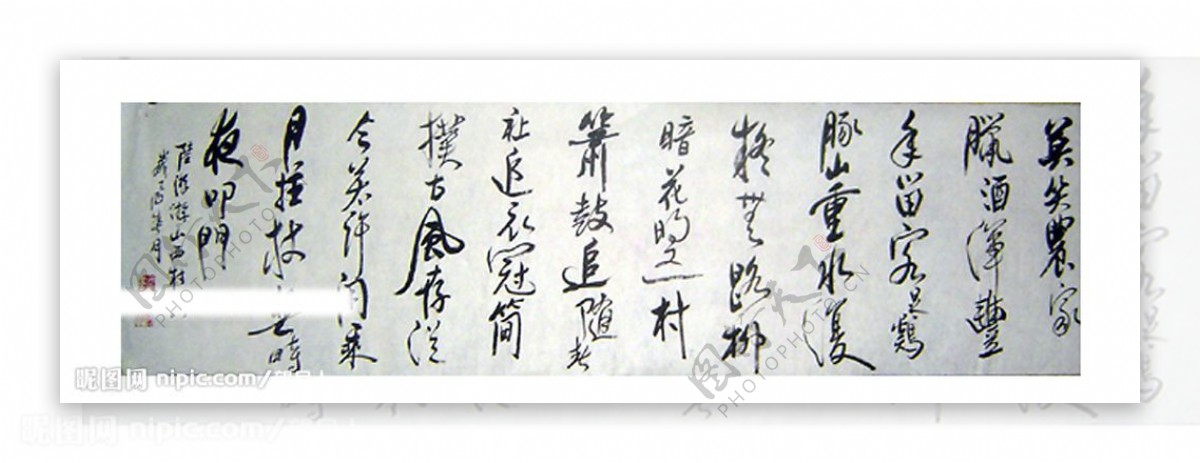 莫笑農家
臘酒渾豐
年留客足鷄
豚山重水復
疑無路柳
暗花明又一村
簫鼓追隨春
社近衣冠簡
樸古風存從
今若許閑乘
月拄杖無時
夜叩門
陸游游山西村
昵图网 nipic.com/
昵图网 nipic.com/